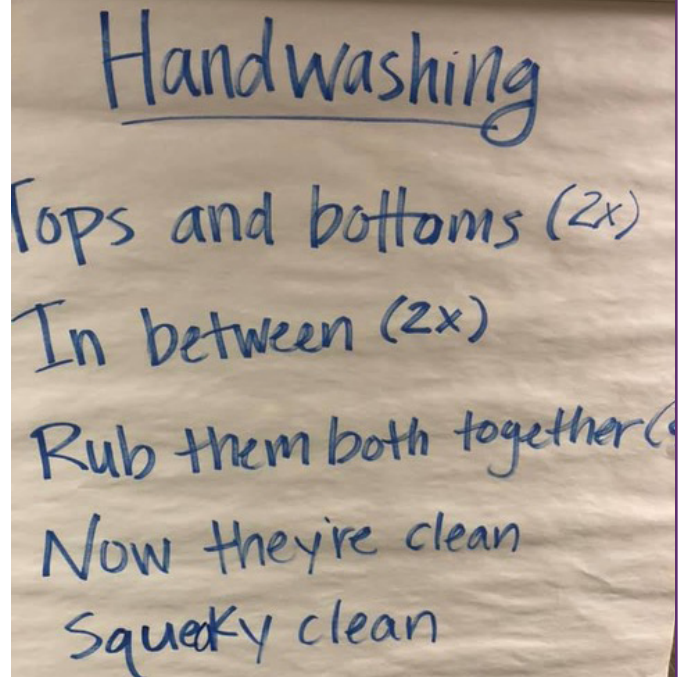 Handwashing
Tops and bottoms (2x)
In between (2x)
Rub them both together (
Now they're clean
Squeaky clean